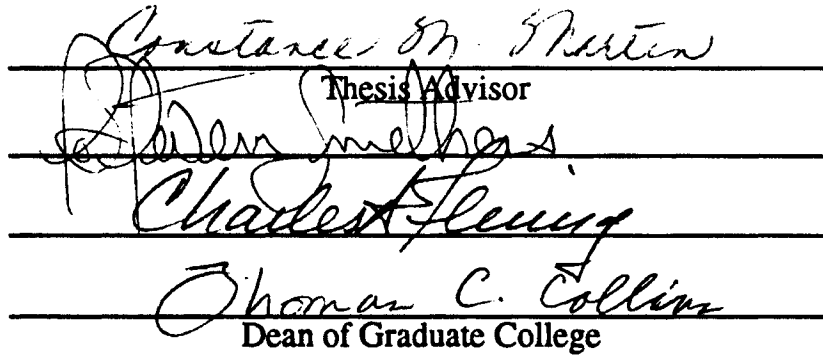 Constance M. Martin
Thesis Advisor
Smethers
Charles Fleming
Thomas C. Collins
Dean of Graduate College